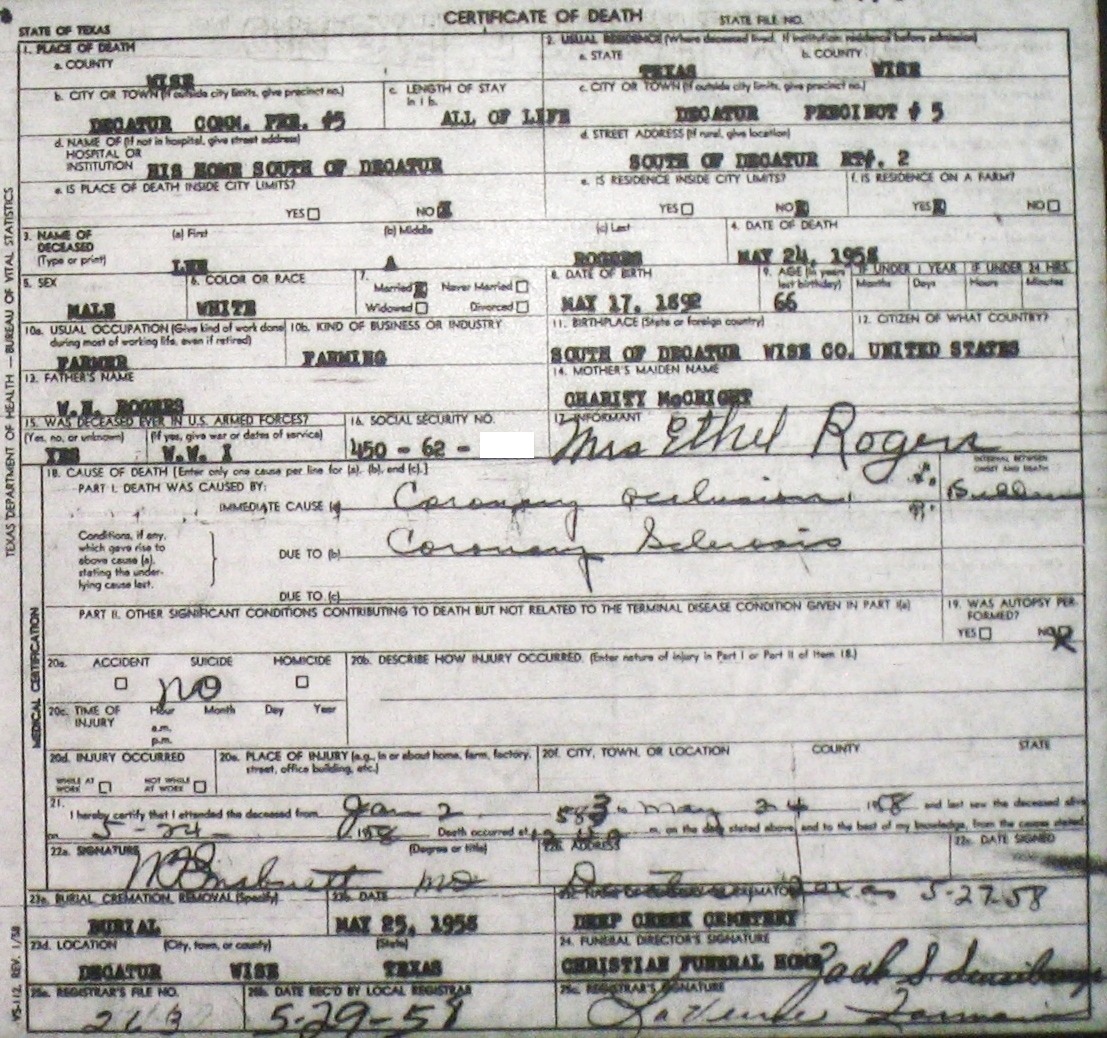 CERTIFICATE OF DEATH
STATE OF TEXAS
STATE FILE NO.
1. PLACE OF DEATH
a. COUNTY
WISE
2. USUAL RESIDENCE (Where deceased lived. If institution: residence before admission)
a. STATE
TEXAS
b. COUNTY
WISE
b. CITY OR TOWN (If outside city limits, give precinct no.)
DECATUR COMM. PER. #5
c. LENGTH OF STAY
in 1 b.
ALL OF LIFE
c. CITY OR TOWN (If outside city limits, give precinct no.)
DECATUR PERCINCT # 5
d. NAME OF (If not in hospital, give street address)
HOSPITAL OR
INSTITUTION HIS HOME SOUTH OF DECATUR
d. STREET ADDRESS (If rural, give location)
SOUTH OF DECATUR RT#. 2
e. IS PLACE OF DEATH INSIDE CITY LIMITS?
YES NO
e. IS RESIDENCE INSIDE CITY LIMITS?
YES NO
f. IS RESIDENCE ON A FARM?
YES NO
3. NAME OF
DECEASED
(Type or print)
(a) First
LEE
(b) Middle
A
(c) Last
ROGERS
4. DATE OF DEATH
MAY 24, 1958
5. SEX
MALE
6. COLOR OR RACE
WHITE
7.
Married Never Married
Widowed Divorced
8. DATE OF BIRTH
MAY 17, 1892
9. AGE (In years
last birthday)
66
IF UNDER 1 YEAR
Months Days
IF UNDER 24 HRS.
Hours Minutes
10a. USUAL OCCUPATION (Give kind of work done
during most of working life, even if retired)
FARMER
10b. KIND OF BUSINESS OR INDUSTRY
FARMING
11. BIRTHPLACE (State or foreign country)
SOUTH OF DECATUR WISE CO.
12. CITIZEN OF WHAT COUNTRY?
UNITED STATES
13. FATHER'S NAME
ROGERS
14. MOTHER'S MAIDEN NAME
CHARITY McCRIGHT
15. WAS DECEASED EVER IN U.S. ARMED FORCES?
(Yes, no, or unknown)
YES
(If yes, give war or dates of service)
W.W. I
16. SOCIAL SECURITY NO.
450 - 62 -
17. INFORMANT
Mrs Ethel Rogers
18. CAUSE OF DEATH [Enter only one cause per line for (a), (b), and (c).]
INTERVAL BETWEEN
ONSET AND DEATH
PART I. DEATH WAS CAUSED BY:
IMMEDIATE CAUSE (a) Coronary occlusion
Conditions, if any,
which gave rise to
above cause (a),
stating the under-
lying cause last.
DUE TO (b) Coronary Sclerosis
DUE TO (c)
PART II. OTHER SIGNIFICANT CONDITIONS CONTRIBUTING TO DEATH BUT NOT RELATED TO THE TERMINAL DISEASE CONDITION GIVEN IN PART I(a)
19. WAS AUTOPSY PER-
FORMED?
YES NO
20a. ACCIDENT SUICIDE HOMICIDE
no
20b. DESCRIBE HOW INJURY OCCURRED. (Enter nature of injury in Part I or Part II of Item 18.)
20c. TIME OF
INJURY
Hour Month Day Year
a.m.
p.m.
20d. INJURY OCCURRED
WHILE AT
WORK
NOT WHILE
AT WORK
20e. PLACE OF INJURY (e.g., in or about home, farm, factory,
street, office building, etc.)
20f. CITY, TOWN, OR LOCATION COUNTY STATE
21.
I hereby certify that I attended the deceased from Jan 2 58 to May 24 1958 and last saw the deceased alive
on 5-24- 1958 Death occurred at m. on the date stated above, and to the best of my knowledge, from the causes stated.
22a. SIGNATURE
(Degree or title)
MD
22b. ADDRESS
Decatur Texas
22c. DATE SIGNED
5-27-58
23a. BURIAL, CREMATION, REMOVAL (Specify)
BURIAL
23b. DATE
MAY 25, 1958
DEEP CREEK CEMETERY
23d. LOCATION (City, town, or county) (State)
DECATUR WISE TEXAS
24. FUNERAL DIRECTOR'S SIGNATURE
CHRISTIAN FUNERAL HOME
25a. REGISTRAR'S FILE NO.
25b. DATE REC'D BY LOCAL REGISTRAR
5-29-58
25c. REGISTRAR'S SIGNATURE
MEDICAL CERTIFICATION
TEXAS DEPARTMENT OF HEALTH — BUREAU OF VITAL STATISTICS
VS-112, REV. 1/58